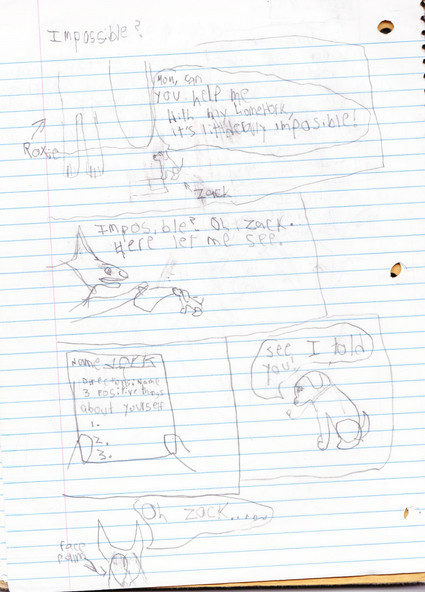 Impossible?
Mom, can
you help me
with my homework,
it's litterally impossible!
Roxie
Zack
Imposible? Oh, Zack.
Here let me see.
Name ZACK
Directions: Name
3 positive things
about yourself
1.
2.
3.
see, I told
you!
Oh Zack.....
face
palm